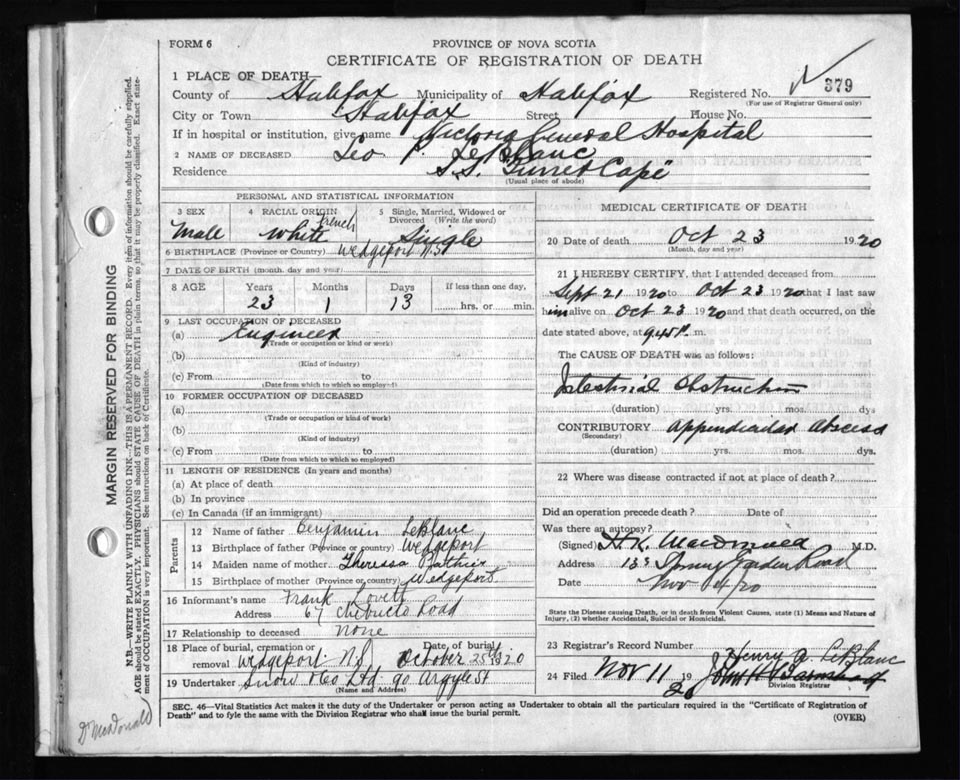 FORM 6
PROVINCE OF NOVA SCOTIA
CERTIFICATE OF REGISTRATION OF DEATH
379
1 PLACE OF DEATH—
County of Halifax Municipality of Halifax Registered No.
(For use of Registrar General only)
City or Town Halifax Street House No.
If in hospital or institution, give name Victoria General Hospital
2 NAME OF DECEASED Leo P. LeBlanc
Residence S.S. "Turret Cape"
(Usual place of abode)
PERSONAL AND STATISTICAL INFORMATION
3 SEX 4 RACIAL ORIGIN 5 Single, Married, Widowed or Divorced (Write the word)
Male White French Single
6 BIRTHPLACE (Province or Country) Wedgeport N.S.
7 DATE OF BIRTH (month, day and year)
8 AGE Years Months Days If less than one day,
23 1 13 hrs. or min.
9 LAST OCCUPATION OF DECEASED
(a) Engineer
(Trade or occupation or kind of work)
(b)
(Kind of industry)
(c) From to
(Date from which to which so employed)
10 FORMER OCCUPATION OF DECEASED
(a)
(Trade or occupation or kind of work)
(b)
(Kind of industry)
(c) From to
(Date from which to which so employed)
11 LENGTH OF RESIDENCE (In years and months)
(a) At place of death
(b) In province
(c) In Canada (if an immigrant)
Parents
12 Name of father Benjamin LeBlanc
13 Birthplace of father (Province or country) Wedgeport
14 Maiden name of mother Theressa Pothier
15 Birthplace of mother (Province or country) Wedgeport
16 Informant's name Frank Lovett
Address 67 Chebucto Road
17 Relationship to deceased none
18 Place of burial, cremation or removal Wedgeport N.S. Date of burial October 25th 1920
19 Undertaker Snow & Co Ltd 90 Argyle St
(Name and Address)
MEDICAL CERTIFICATE OF DEATH
20 Date of death Oct 23 1920
(Month, day and year)
21 I HEREBY CERTIFY, that I attended deceased from
Sept 21 1920 to Oct 23 1920 that I last saw
him alive on Oct 23 1920 and that death occurred, on the
date stated above, at 9.45 P. m.
The CAUSE OF DEATH was as follows:
Intestinal Obstruction
(duration) yrs. mos. dys
CONTRIBUTORY Abscess
(Secondary)
(duration) yrs. mos. dys.
22 Where was disease contracted if not at place of death?
Did an operation precede death? Date of
Was there an autopsy?
(Signed) H.K. MacDonald M.D.
Address Spring Garden Road
Date Nov /20
State the Disease causing Death, or in death from Violent Causes, state (1) Means and Nature of Injury, (2) whether Accidental, Suicidal or Homicidal.
23 Registrar's Record Number
Henry A LeBlanc
24 Filed Nov 11 19 20
Division Registrar
SEC. 46—Vital Statistics Act makes it the duty of the Undertaker or person acting as Undertaker to obtain all the particulars required in the "Certificate of Registration of
Death" and to fyle the same with the Division Registrar who shall issue the burial permit.
(OVER)
MARGIN RESERVED FOR BINDING
N.B.—WRITE PLAINLY WITH UNFADING INK—THIS IS A PERMANENT RECORD. Every item of information should be carefully supplied.
AGE should be stated EXACTLY. PHYSICIANS should STATE CAUSE OF DEATH in plain terms, so that it may be properly classified. Exact statement
of OCCUPATION is very important. See instructions on back of Certificate.
Dr McDonald